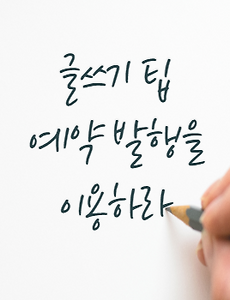 글쓰기 팁
예약 발행을
이용하라